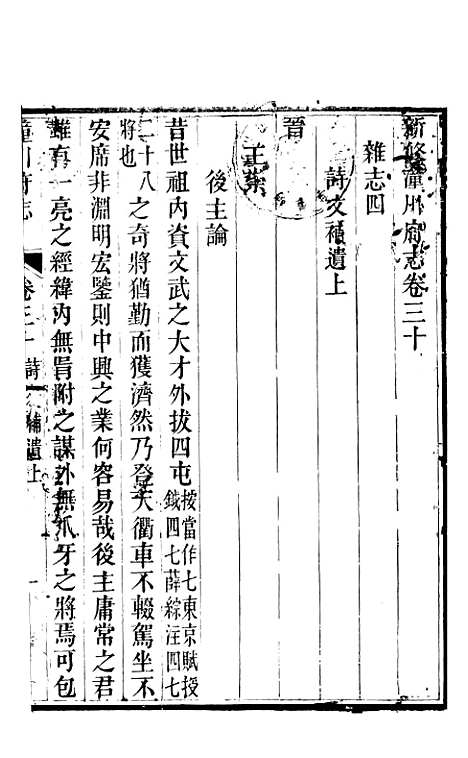 新修潼川府志卷三十
雜志四
詩文補遺上
晉
王崇
後主論
昔世祖內資文武之大才外拔四屯按當作七東京賦授鉞四七薛綜注四七
二十八將也之奇將猶勤而獲濟然乃登天衢車不輟駕坐不
安席非淵明宏鑒則中興之業何容易哉後主庸常之君
雖有一亮之經緯內無胥附之謀外無爪牙之將焉可包
潼川府志
卷三十詩文補遺上
一